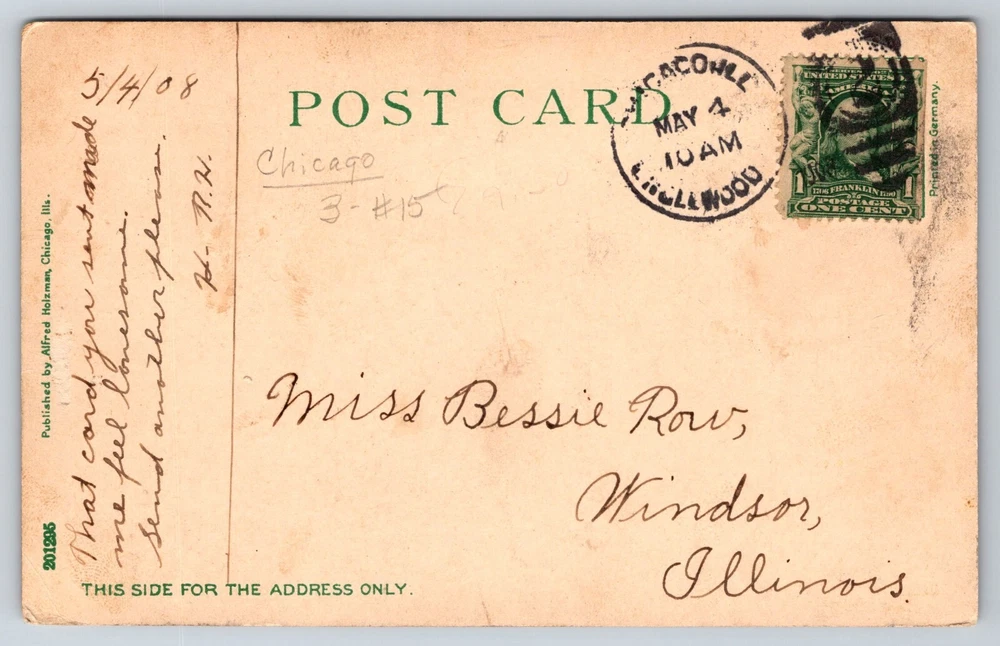 5/4/08
That card you sent made
me feel lonesome.
Send another please.
H. R. H.
Published by Alfred Holzman, Chicago, Ills.
201295
POST CARD.
Chicago
3 - #15
MAY 4
10 AM
SERIES 1902
UNITED STATES OF
AMERICA
1 1706 FRANKLIN 1790 1
POSTAGE
ONE CENT
Printed in Germany.
Miss Bessie Row,
Windsor,
Illinois.
THIS SIDE FOR THE ADDRESS ONLY.